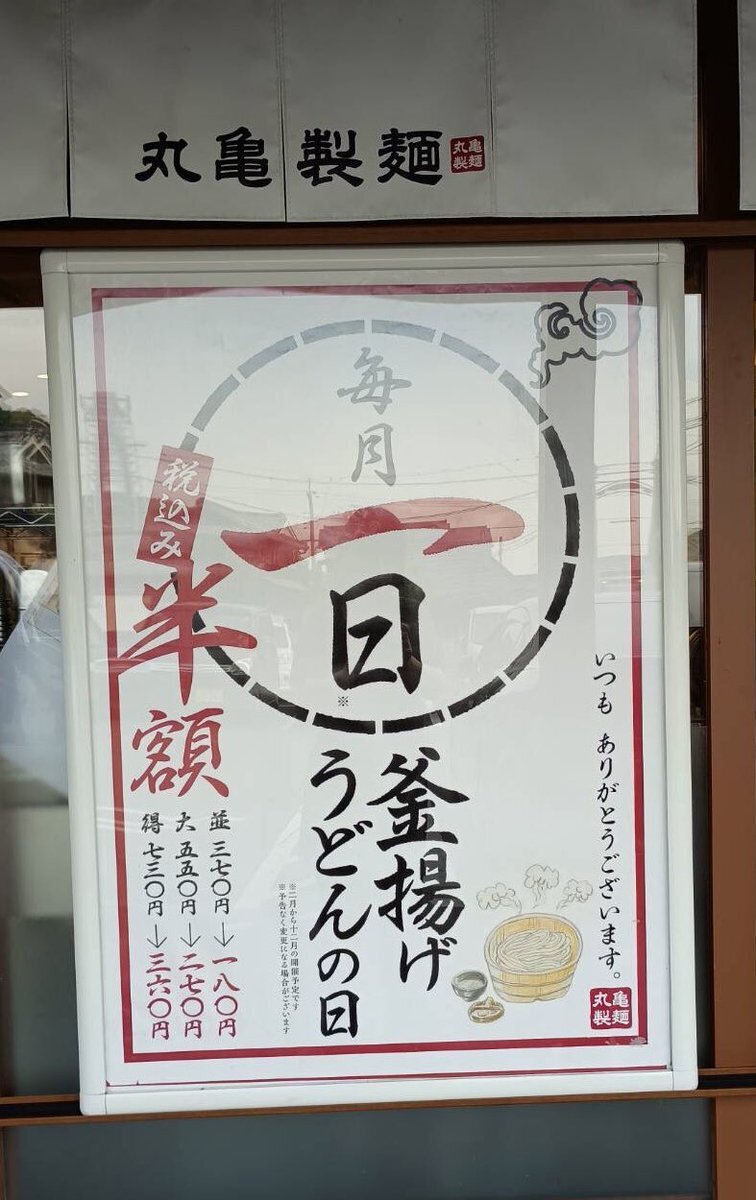 丸亀製麺
丸亀
製麺
毎月
一日
※
釜揚げ
うどんの日
税込み
半額
並 三七〇円→一八〇円
大 五五〇円→二七〇円
得 七三〇円→三六〇円
※二月から十二月の開催予定です
※予告なく変更になる場合がございます
いつも ありがとうございます。
丸亀
製麺